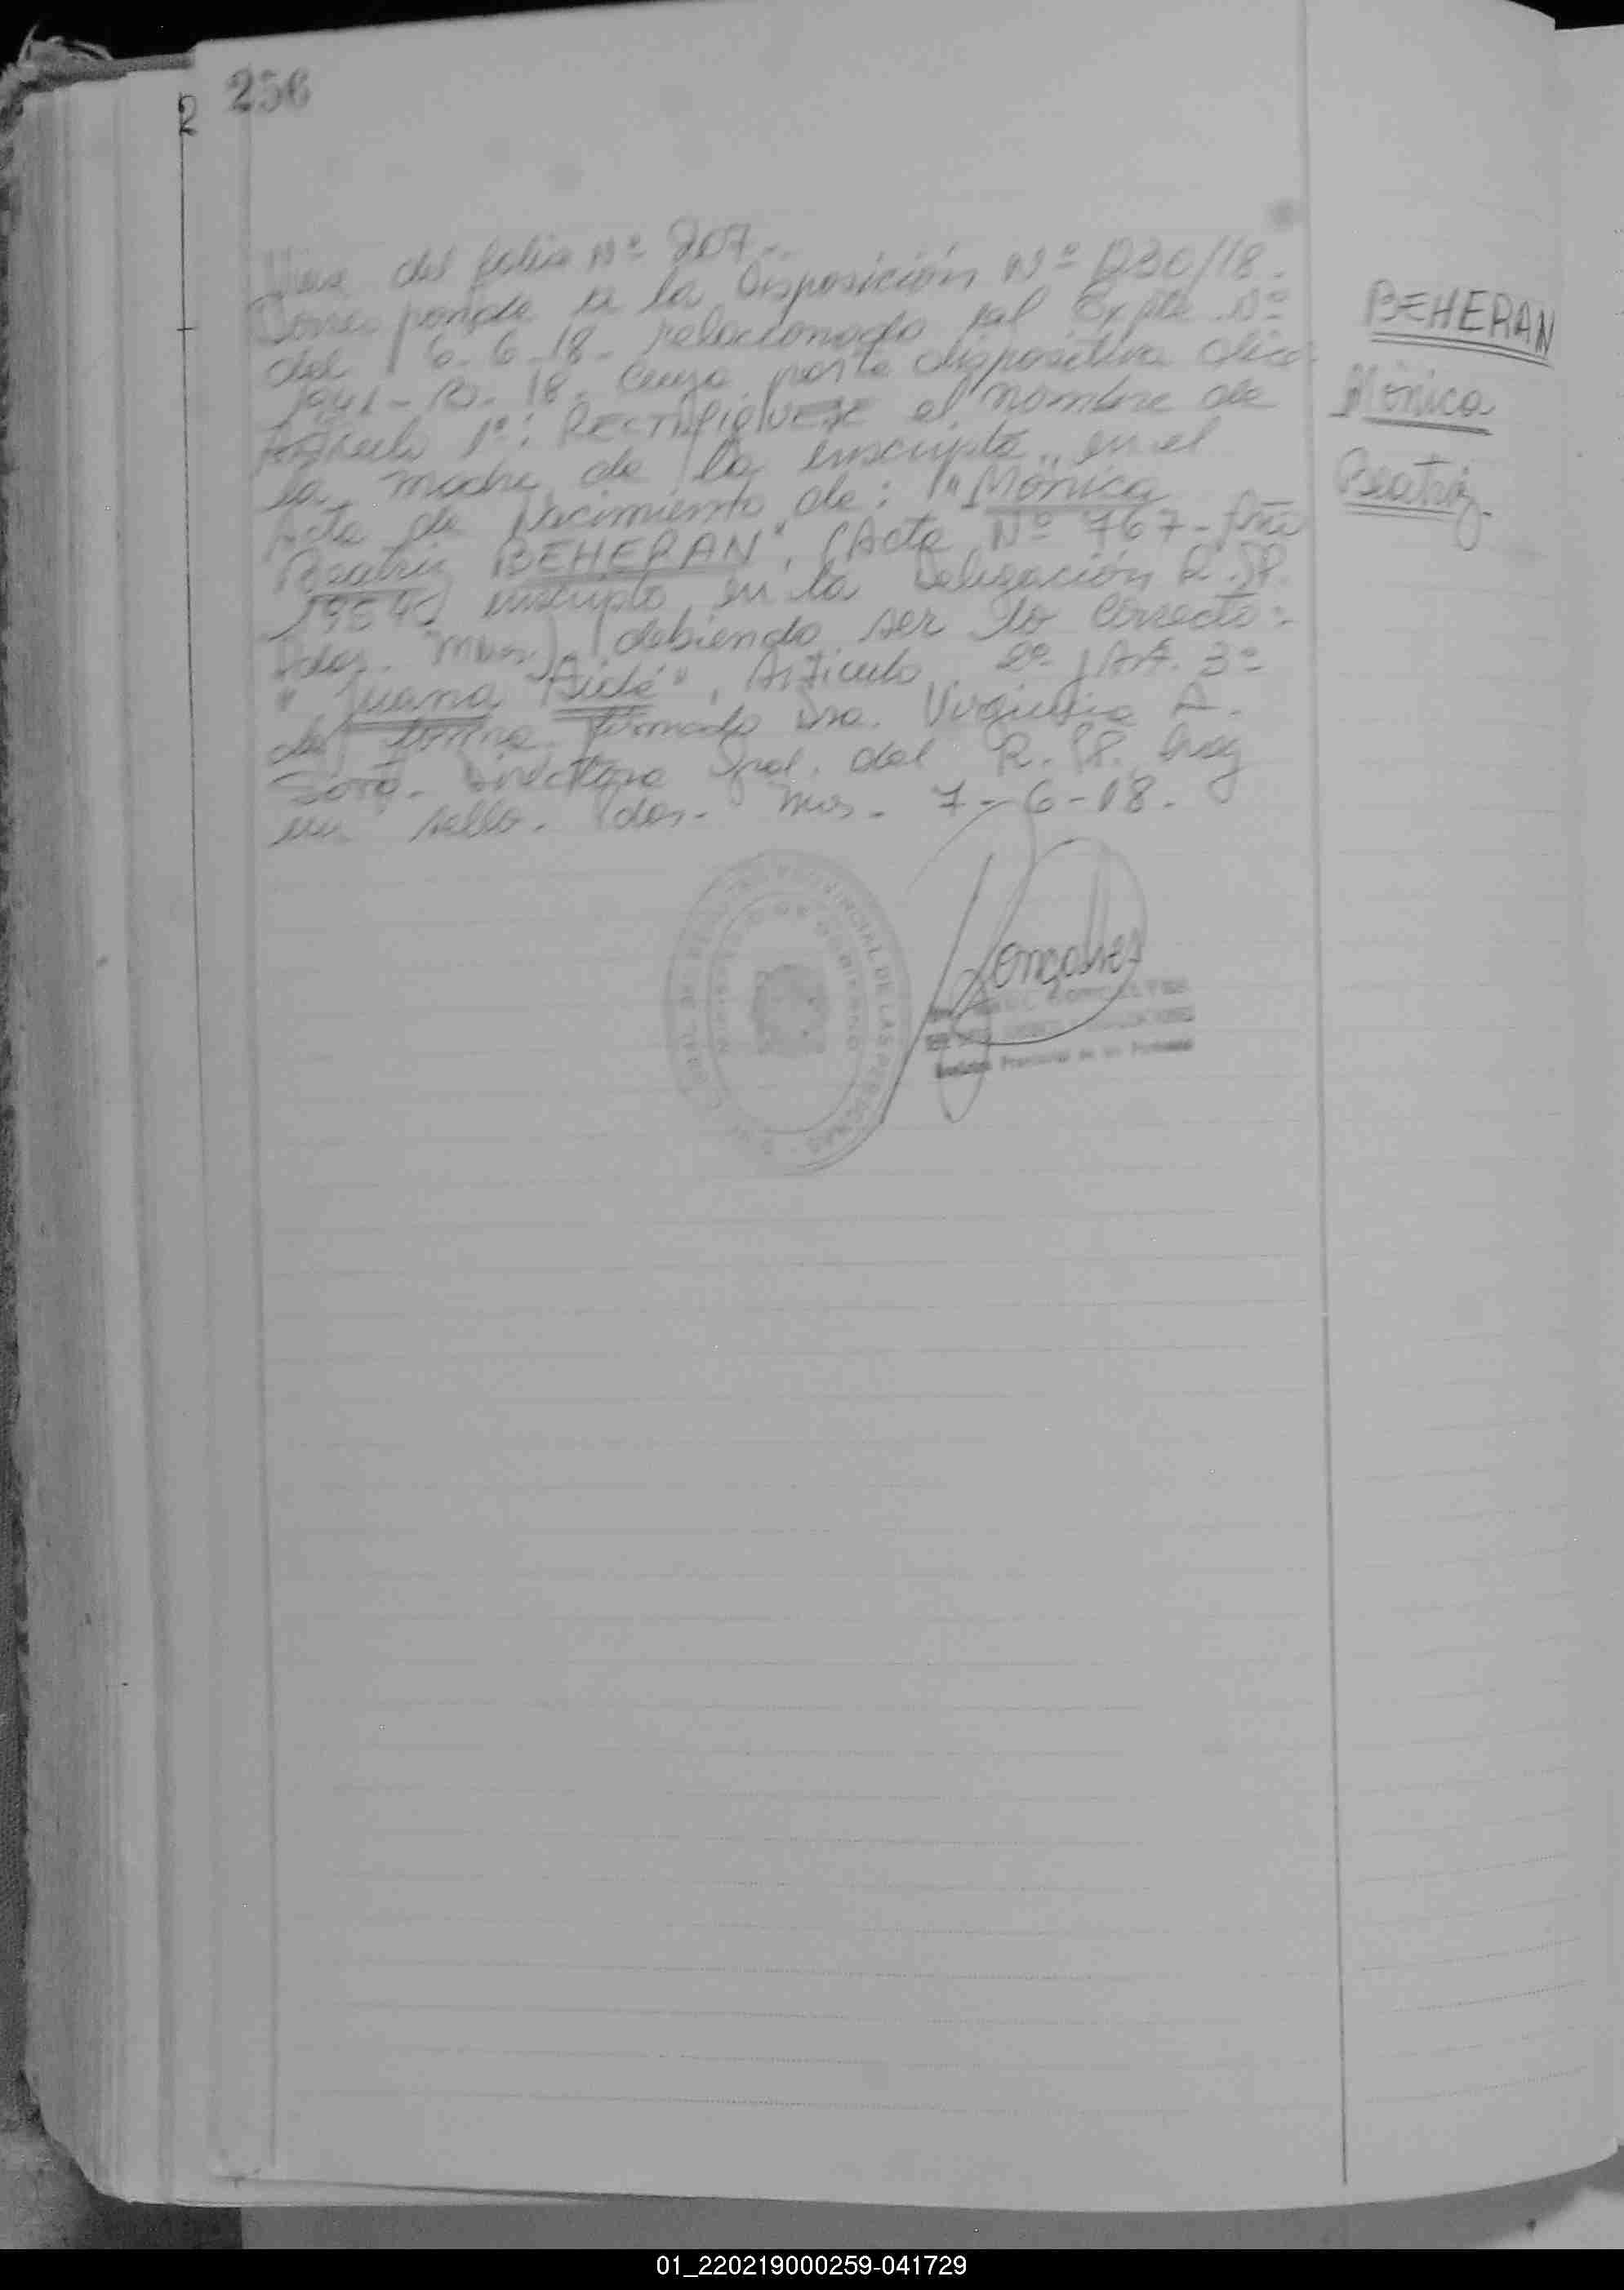 256
del folio Nº 207.-
Corresponde a la Disposición Nº 1230/18.
del 6-6-18- relacionado al Expte Nº
18. Cuya parte dispositiva dice:
Artículo 1º: RECTIFÍQUESE el nombre de
la madre de la inscripta, en el
Acta de Nacimiento de: "Mónica
Beatriz BEHERAN", (Acta Nº 767- Año
inscripto en la Delegación R.P.P.
Pdas. Mnes.), debiendo ser lo correcto:
"Juana Aidé", Artículo 2º, Art. 3º
de forma. Firmado Dra. Virginia A.
Soto. Directora Gral. del R.P.P. hay
un sello. Pdas- Mnes- 7-6-18.
BEHERAN
Mónica
Beatriz
PROVINCIAL DE LAS PERSONAS
MINISTERIO DE GOBIERNO
Goncalves
GONCALVES
Registro Provincial de las Personas
01_220219000259-041729